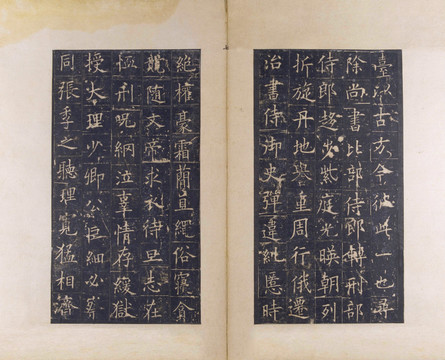 臺以古方今彼此一也尋
除尚書比部侍郎轉刑部
侍郎趍步紫庭光暎朝列
折旋丹地譽重周行俄遷
治書侍御史彈違糺慝時
絶權豪霜蕳直繩俗寢貪
競随文帝求衣待旦志在
恤刑咒網泣辜情存緩獄
授大理少卿公巨細必察
同張季之聽理寬猛相濟